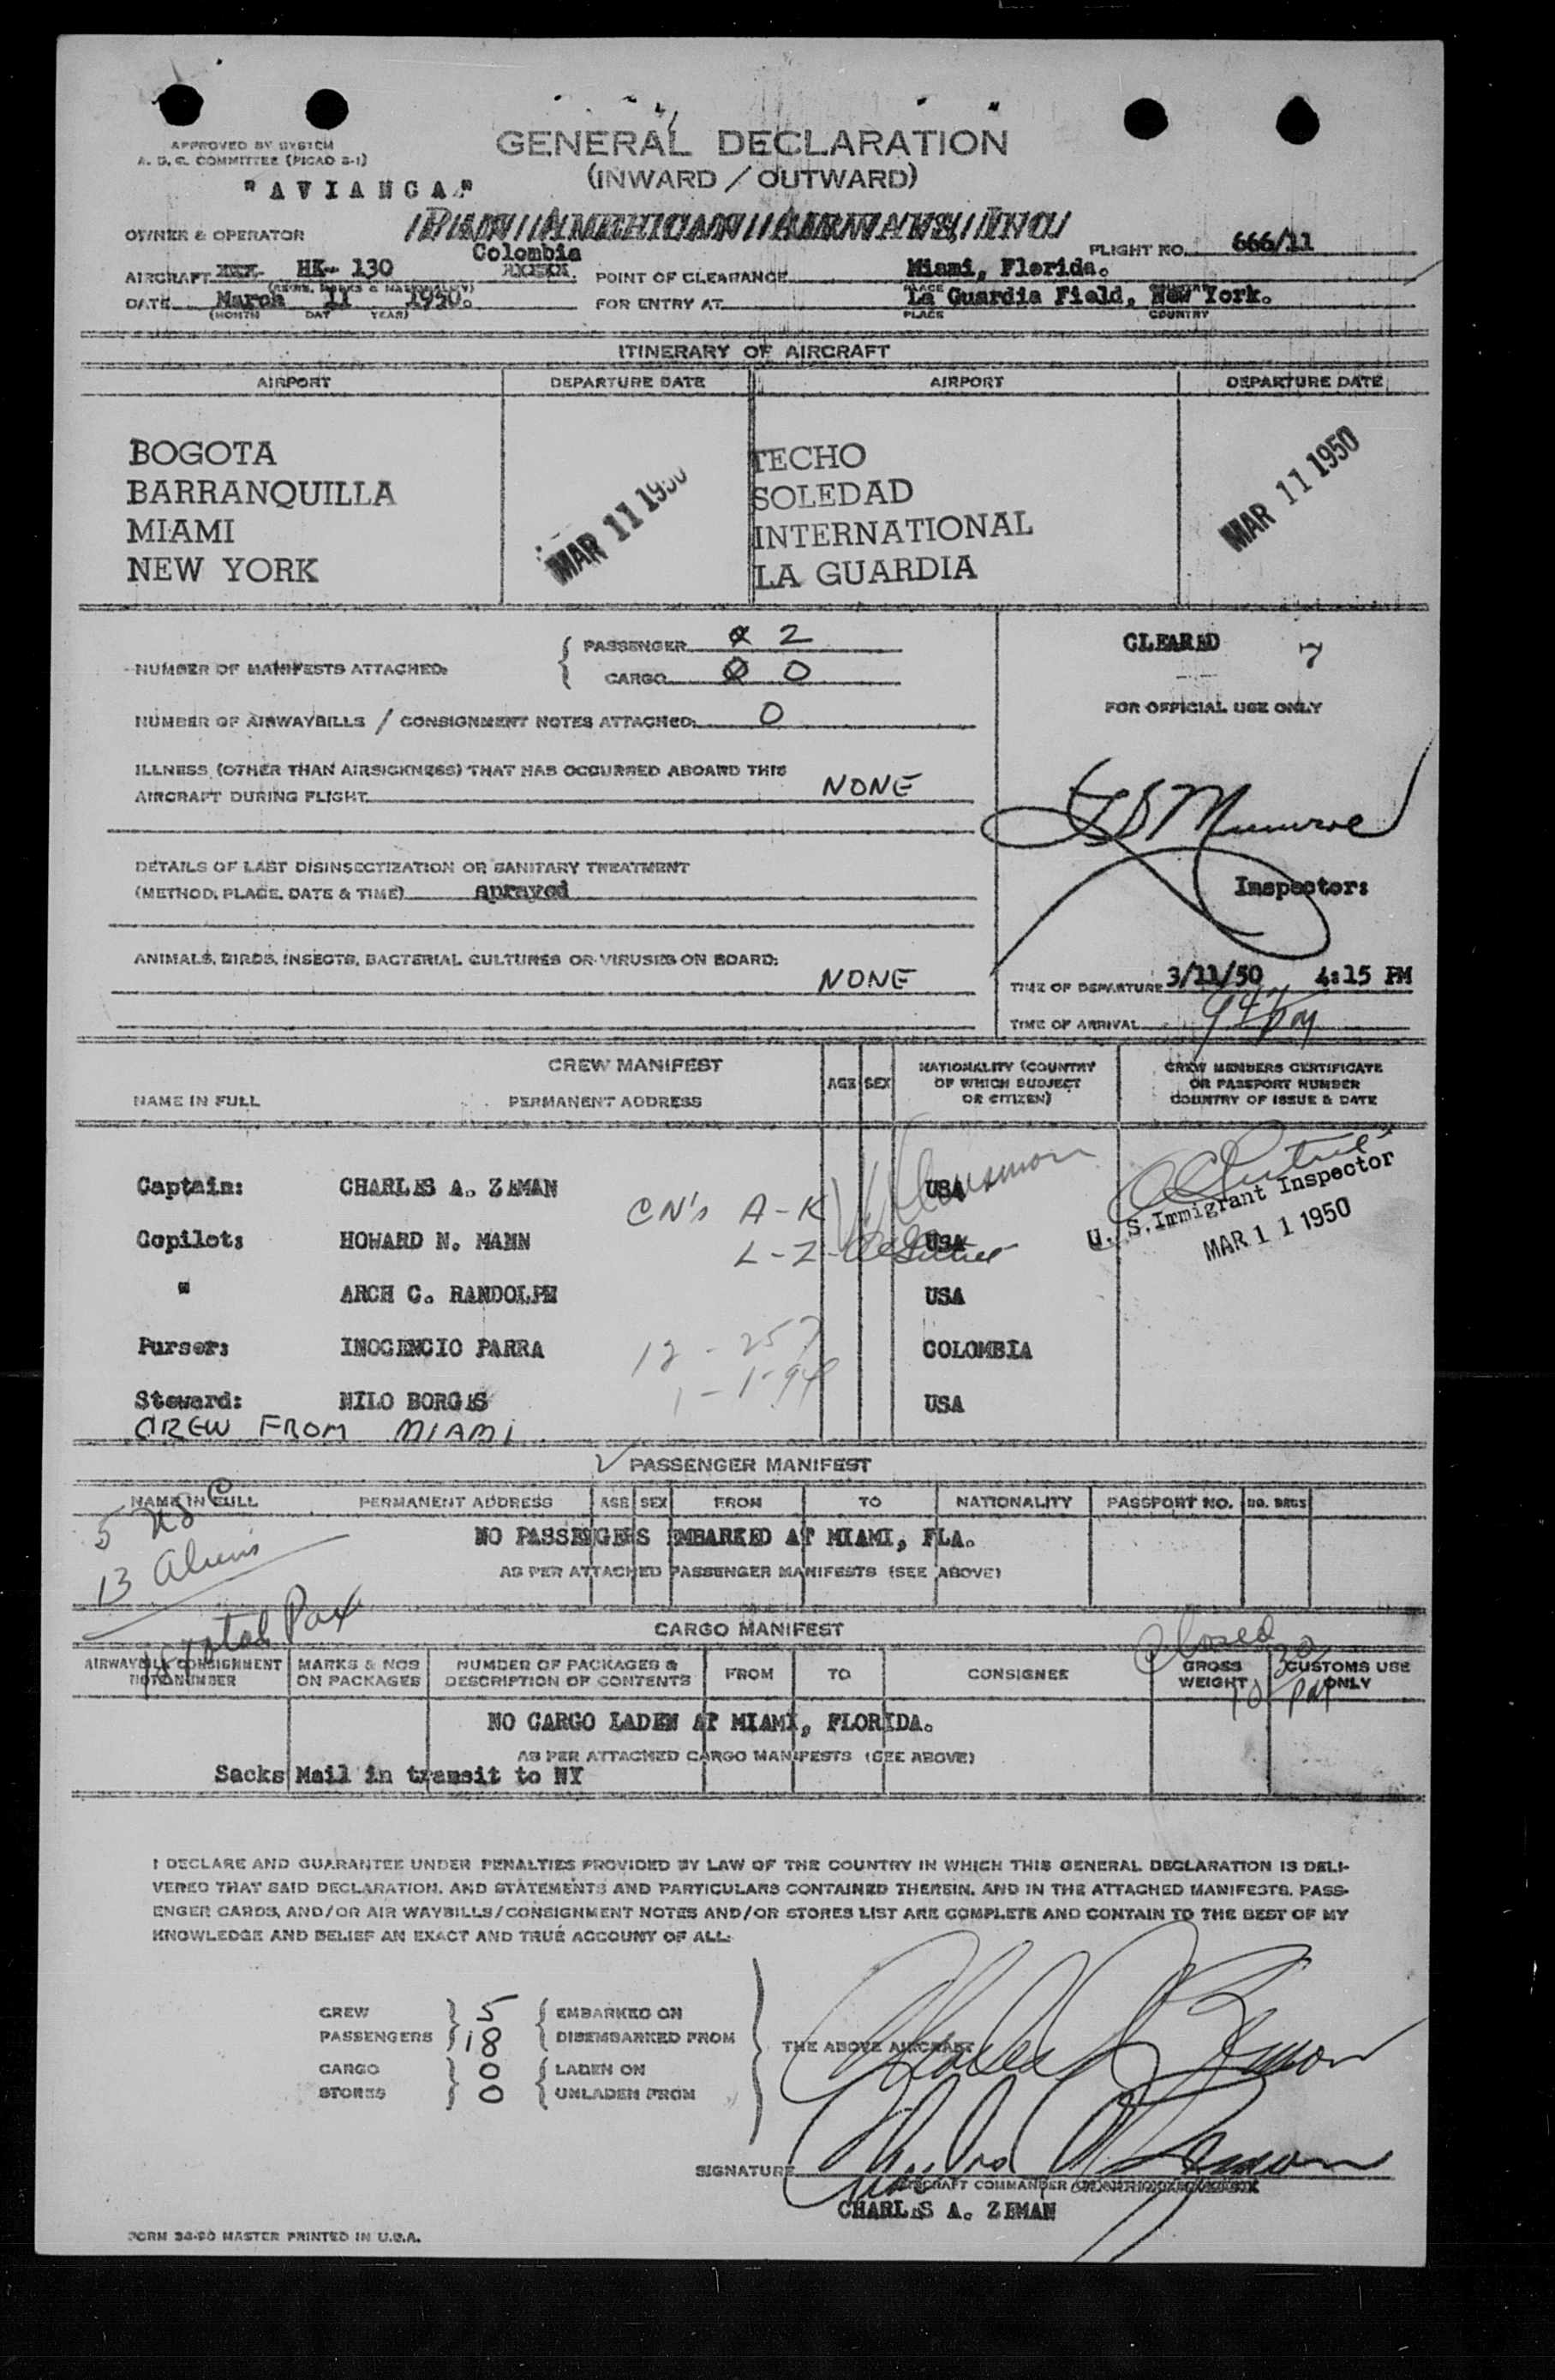 APPROVED BY SYSTEM
A. D. C. COMMITTEE (PICAO 2-1)
GENERAL DECLARATION
(INWARD / OUTWARD)
"AVIANCA"
OWNER & OPERATOR PAN AMERICAN AIRWAYS, INC
FLIGHT NO. 666/11
AIRCRAFT HK- 130 Colombia
POINT OF CLEARANCE Miami, Florida.
DATE March 11 1950.
(MONTH DAY YEAR)
FOR ENTRY AT La Guardia Field, New York.
PLACE COUNTRY
ITINERARY OF AIRCRAFT
AIRPORT DEPARTURE DATE AIRPORT DEPARTURE DATE
BOGOTA TECHO
BARRANQUILLA SOLEDAD
MIAMI INTERNATIONAL
NEW YORK LA GUARDIA
MAR 11 1950 MAR 11 1950
NUMBER OF MANIFESTS ATTACHED: PASSENGER 2
CARGO 0 0
CLEARED 7
NUMBER OF AIRWAYBILLS / CONSIGNMENT NOTES ATTACHED: 0
FOR OFFICIAL USE ONLY
ILLNESS (OTHER THAN AIRSICKNESS) THAT HAS OCCURRED ABOARD THIS
AIRCRAFT DURING FLIGHT NONE
DETAILS OF LAST DISINSECTIZATION OR SANITARY TREATMENT
(METHOD, PLACE, DATE & TIME) sprayed
Inspector:
ANIMALS, BIRDS, INSECTS, BACTERIAL CULTURES OR VIRUSES ON BOARD:
NONE
TIME OF DEPARTURE 3/11/50 4:15 PM
TIME OF ARRIVAL
CREW MANIFEST
NAME IN FULL PERMANENT ADDRESS AGE SEX
NATIONALITY (COUNTRY
OF WHICH SUBJECT
OR CITIZEN)
CREW MEMBERS CERTIFICATE
OR PASSPORT NUMBER
COUNTRY OF ISSUE & DATE
Captain: CHARLES A. ZEMAN USA
CN's A-K
U. S. Immigrant Inspector
MAR 11 1950
Copilot: HOWARD N. MANN USA
L-Z
" ARCH C. RANDOLPH USA
Purser: INOCENCIO PARRA COLOMBIA
Steward: NILO BORGES USA
CREW FROM MIAMI
PASSENGER MANIFEST
NAME IN FULL PERMANENT ADDRESS AGE SEX FROM TO NATIONALITY PASSPORT NO. NO. BAGS
5 USC
13 Aliens
NO PASSENGERS EMBARKED AT MIAMI, FLA.
AS PER ATTACHED PASSENGER MANIFESTS (SEE ABOVE)
18 total Pax
CARGO MANIFEST
Closed
AIRWAYBILL CONSIGNMENT
NOTE NUMBER
MARKS & NOS
ON PACKAGES
NUMBER OF PACKAGES &
DESCRIPTION OF CONTENTS
FROM TO CONSIGNEE
GROSS
WEIGHT
CUSTOMS USE
ONLY
NO CARGO LADEN AT MIAMI, FLORIDA.
AS PER ATTACHED CARGO MANIFESTS (SEE ABOVE)
Sacks Mail in transit to NY
I DECLARE AND GUARANTEE UNDER PENALTIES PROVIDED BY LAW OF THE COUNTRY IN WHICH THIS GENERAL DECLARATION IS DELI-
VERED THAT SAID DECLARATION, AND STATEMENTS AND PARTICULARS CONTAINED THEREIN, AND IN THE ATTACHED MANIFESTS, PASS-
ENGER CARDS, AND/OR AIR WAYBILLS/CONSIGNMENT NOTES AND/OR STORES LIST ARE COMPLETE AND CONTAIN TO THE BEST OF MY
KNOWLEDGE AND BELIEF AN EXACT AND TRUE ACCOUNT OF ALL:
CREW 5 EMBARKED ON
PASSENGERS 18 DISEMBARKED FROM
THE ABOVE AIRCRAFT
CARGO 0 LADEN ON
STORES 0 UNLADEN FROM
Charles A. Zeman
SIGNATURE Charles A Zeman
AIRCRAFT COMMANDER
CHARLES A. ZEMAN
FORM 34-50 MASTER PRINTED IN U.S.A.